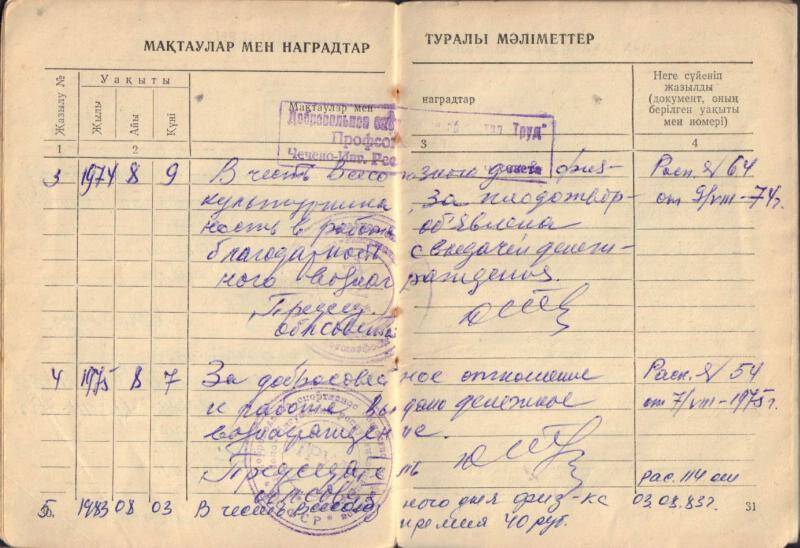 МАҚТАУЛАР МЕН НАГРАДТАР ТУРАЛЫ МӘЛІМЕТТЕР
Жазылу №
Уақыты
Жылы
Айы
Күні
Мақтаулар мен наградтар
Неге сүйеніп
жазылды
(документ, оның
берілген уақыты
мен номері)
1 2 3 4
Добровольное "Труд"
Профсо
Чечено-Инг. Рес
3 1974 8 9 В честь Всесоюзного дня физ- Расп. № 64
культурника за плодотвор- от 9/VIII-74г.
ность в работе объявлена
благодарность с выдачей денеж-
ного вознаграждения.
Председ.
облсовета
4 1975 8 7 За добросовестное отношение Расп. № 54
к работе выдано денежное от 7/VIII-1975г.
вознаграждение.
Председатель
облсовета
рас. 114 от
5. 1983 08 03 В честь Всесоюзного дня физ-ка 03.08.83г.
премия 40 руб.
30 31